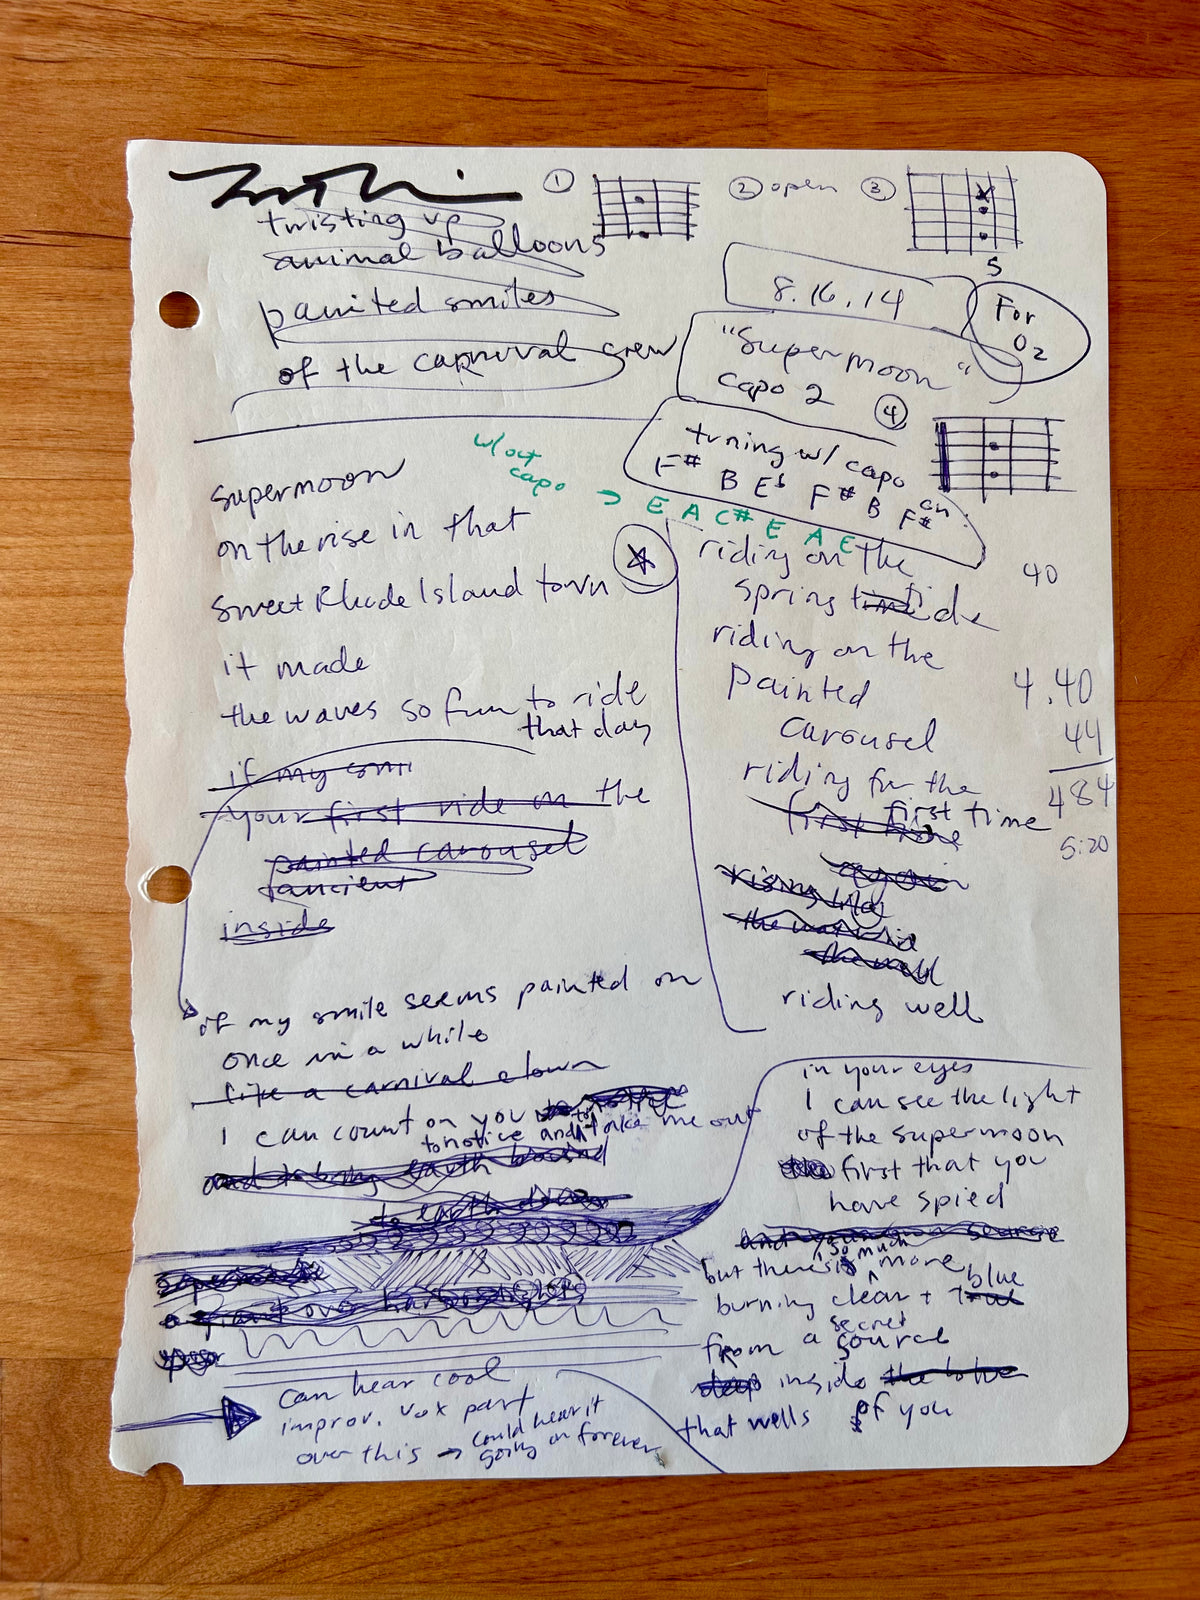 twisting up
animal balloons
painted smiles
of the carnival crew
① ② open ③
5
8.16.14
For
O2
"Supermoon"
capo 2
④
tuning w/ capo on:
F# B Eb F# B F#
w/out
capo → E A C# E A E
supermoon
on the rise in that
sweet Rhode Island town
it made
the waves so fun to ride
that day
if my smi
your first ride on the
painted carousel
inside
if my smile seems painted on
once in a while
like a carnival clown
I can count on you
to notice and take me out
and to bring earth bound
to earth down
riding on the
spring tide
riding on the
painted
carousel
riding for the
first time
first time
again
rising
riding well
40
4.40
44
484
5:20
in your eyes
I can see the light
of the supermoon
first that you
have spied
so much
but there's more
burning clear + blue
true
from a secret source
deep inside
that wells of you
can hear cool
improv. vox part
over this → could hear it
going on forever